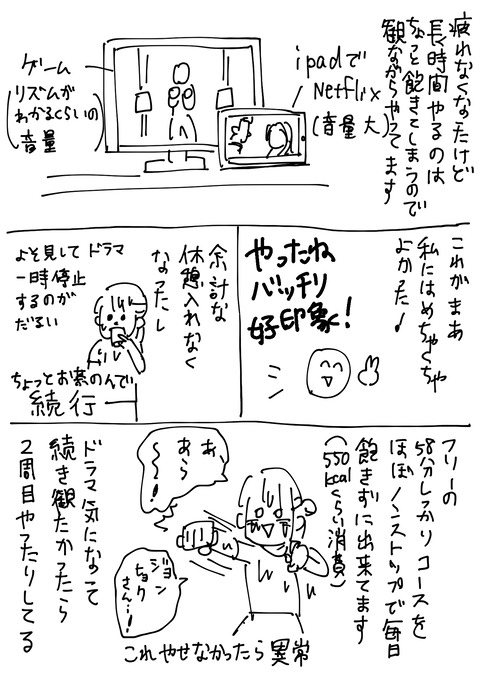 疲れなくなったけど
長時間やるのは
ちょっと飽きてしまうので
観ながらやってます
ipadで
Netflix
(音量 大)
ゲーム
(リズムが
わかるくらいの
音量)
これがまあ
私にはめちゃくちゃ
よかった!
やったね
バッチリ
好印象!
余計な
休憩入れなく
なったし
よそ見して ドラマ
一時停止
するのが
だるい
ちょっとお茶のんで
続行
フリーの
58分しっかりコースを
ほぼノンストップで毎日
飽きずに出来てます
(550kcalくらい消費)
あ、
あら
〜!
ジョン
ヒョク
さん…!
これやせなかったら異常
ドラマ気になって
続き観たかったら
2周目やったりしてる